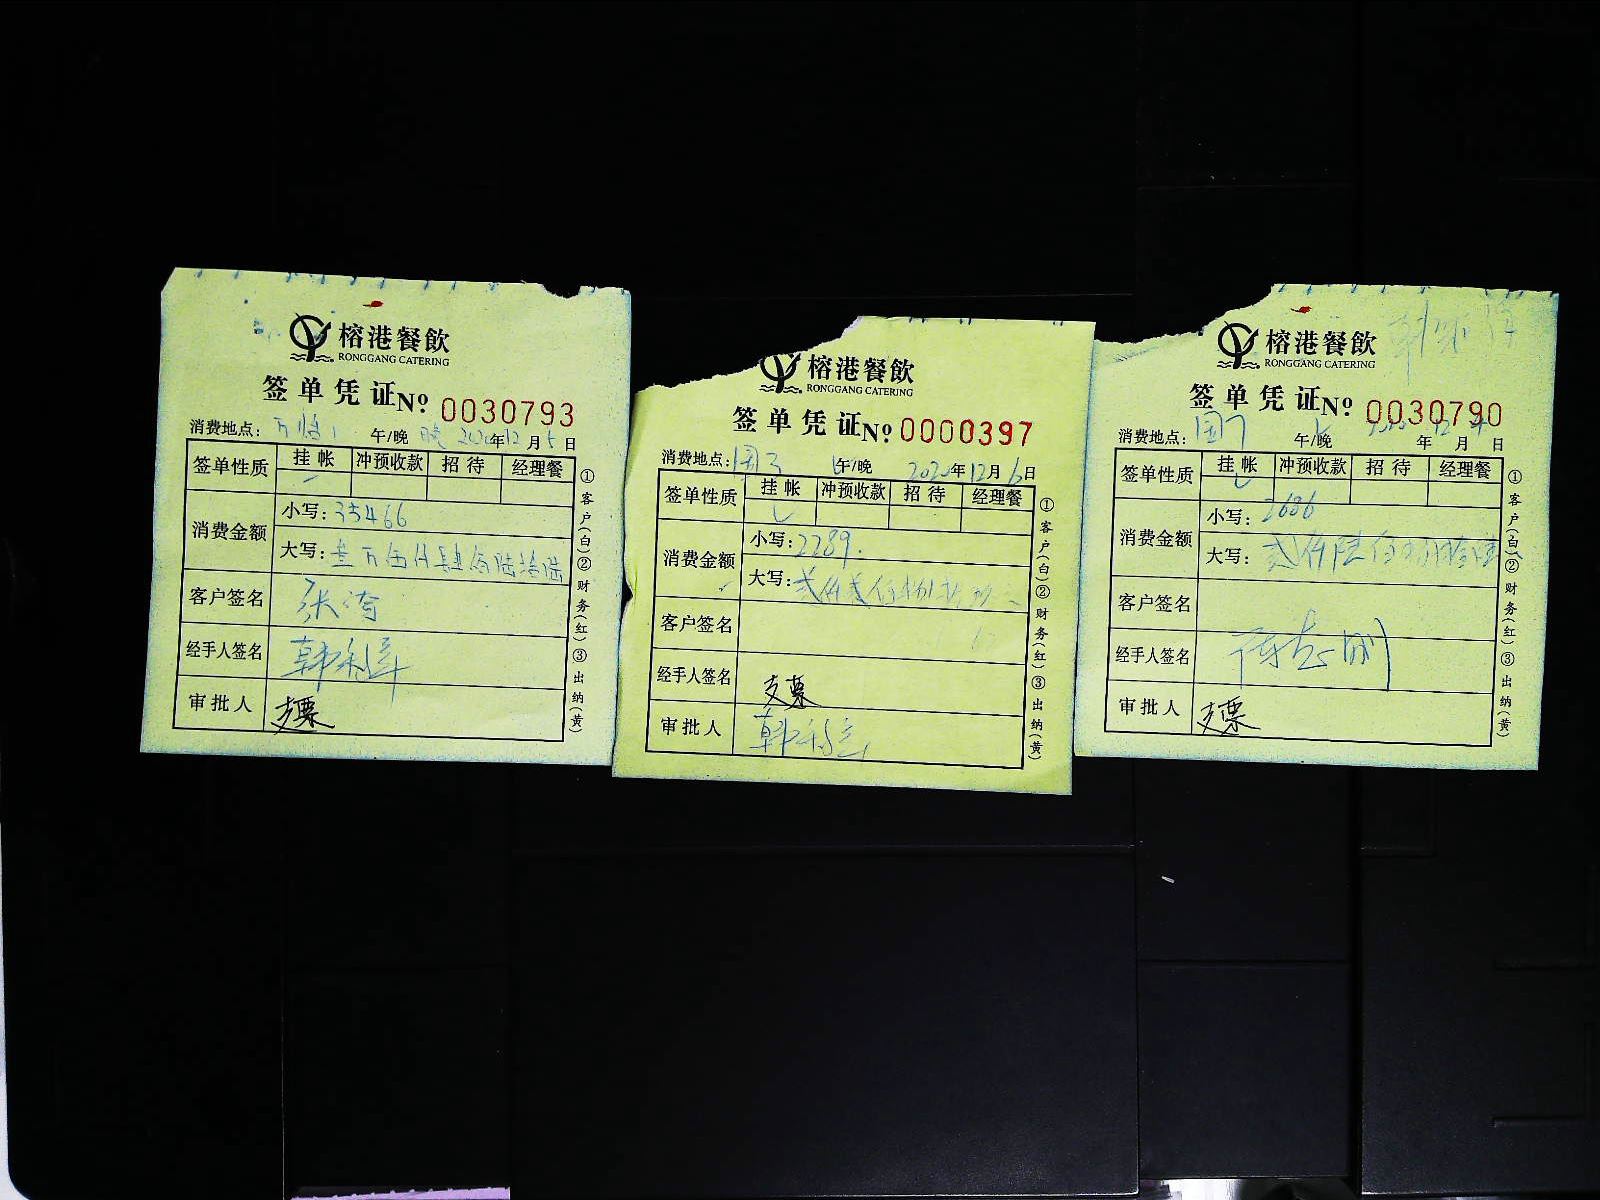 榕港餐飲
RONGGANG CATERING
签单凭证 No 0030793
消费地点: 午/晚 晚 2020年12月5日
签单性质 挂帐 冲预收款 招待 经理餐
消费金额 小写: 35466
大写: 叁万伍仟肆佰陆拾陆
客户签名
经手人签名 韩利
审批人 支票
①客户(白)②财务(红)③出纳(黄)
榕港餐飲
RONGGANG CATERING
签单凭证 No 0000397
消费地点: 国3 午/晚 2020年12月6日
签单性质 挂帐 冲预收款 招待 经理餐
消费金额 小写: 2289.
大写: 贰仟贰佰捌拾玖
客户签名
经手人签名 支票
审批人 韩利
①客户(白)②财务(红)③出纳(黄)
榕港餐飲
RONGGANG CATERING
签单凭证 No 0030790
消费地点: 国7 午/晚 2020年12月4日
签单性质 挂帐 冲预收款 招待 经理餐
消费金额 小写: 2686
大写: 贰仟陆佰捌拾陆
客户签名
经手人签名 陈志刚
审批人 支票
①客户(白)②财务(红)③出纳(黄)